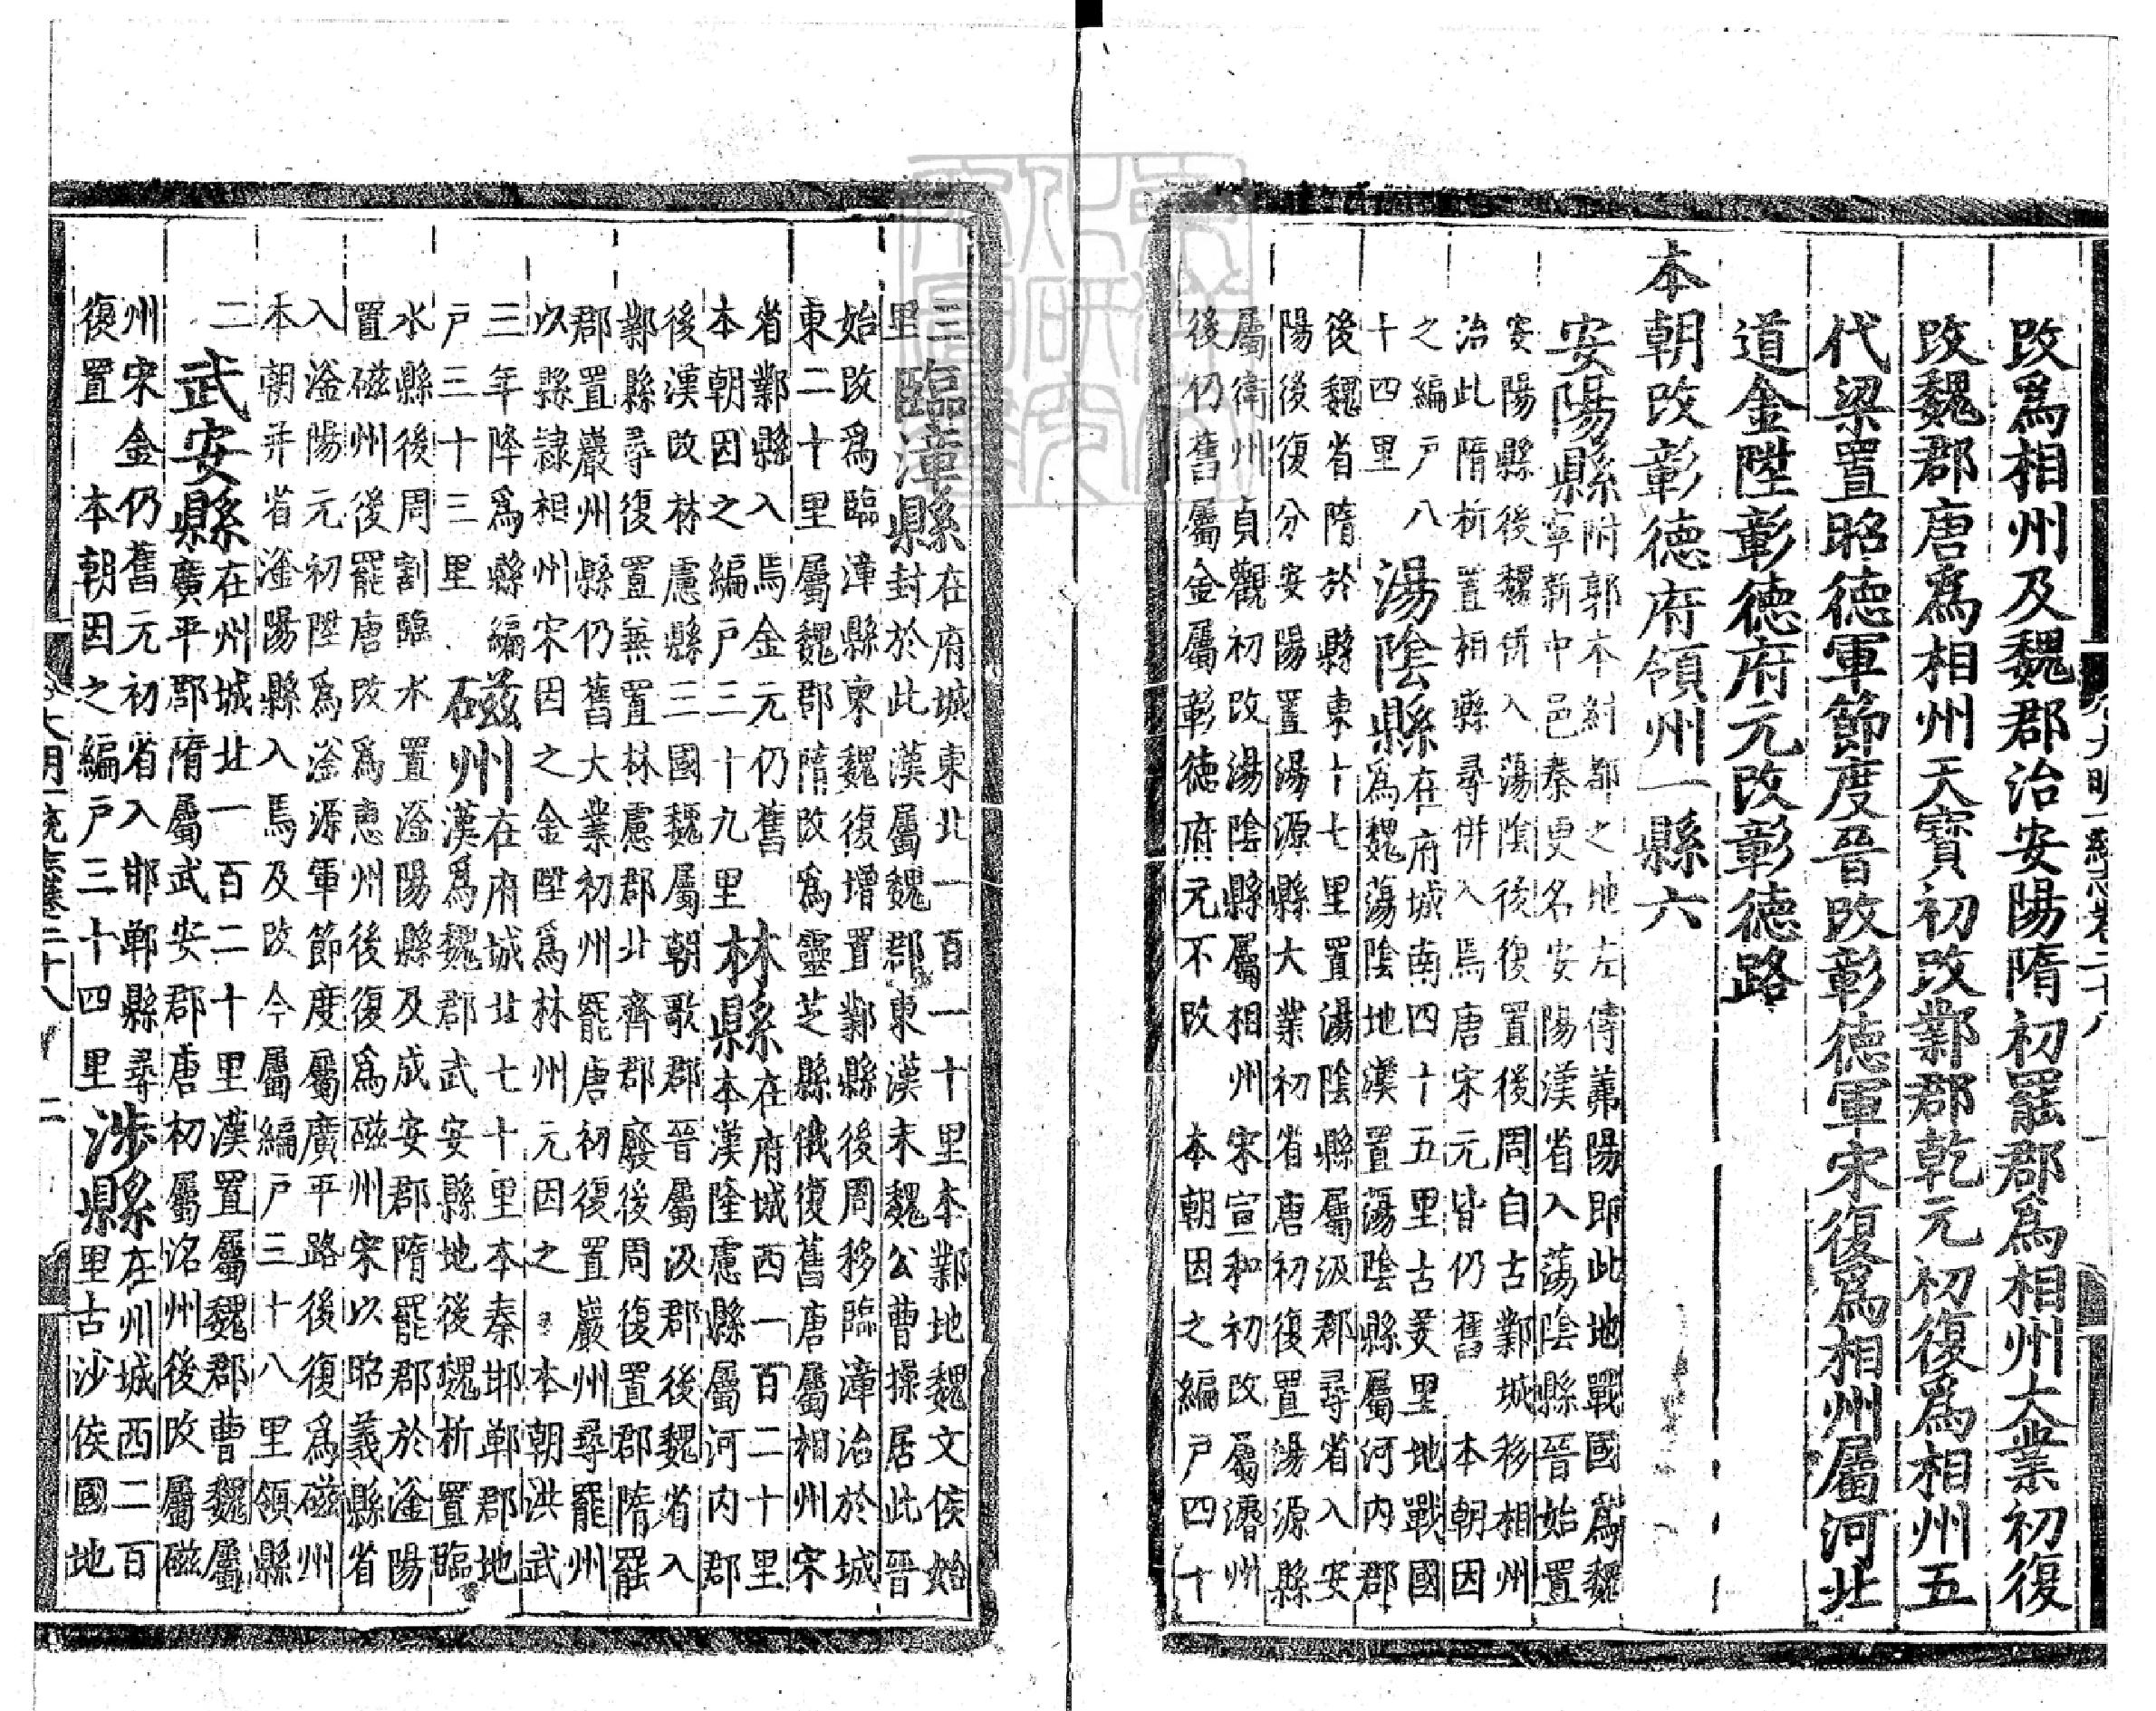 改爲相州及魏郡治安陽隋初罷郡爲相州大業初復
改魏郡唐爲相州天寶初改鄴郡乾元初復爲相州五
代梁置昭德軍節度晉改彰德軍宋復爲相州屬河北
道金陞彰德府元改彰德路
本朝改彰德府領州一縣六
安陽縣
附郭本紂都之地左傳萬陽即此地戰國爲魏
寧新中邑秦更名安陽漢省入蕩陰縣晉始置
安陽縣後魏併入蕩陰後復置後周自古鄴城移相州
治此隋析置相縣尋併入焉唐宋元皆仍舊 本朝因
之編户八
十四里
湯陰縣
在府城南四十五里古羑里地戰國
爲魏蕩陰地漢置蕩陰縣屬河內郡
後魏省隋於縣東十七里置湯陰縣屬汲郡尋省入安
陽後復分安陽置湯源縣大業初省唐初復置湯源縣
屬衛州貞觀初改湯陰縣屬相州宋宣和初改屬濬州
後仍舊屬金屬彰德府元不改 本朝因之編户四十
三
里
臨漳縣
在府城東北一百一十里本鄴地魏文侯始
封於此漢屬魏郡東漢末魏公曹操居此晉
始改爲臨漳縣東魏復增置鄴縣後周移臨漳治於城
東二十里屬魏郡隋改爲靈芝縣俄復舊唐屬相州宋
省鄴縣入焉金元仍舊
本朝因之編户三十九里
林縣
在府城西一百二十里
本漢隆慮縣屬河內郡
後漢改林慮縣三國魏屬朝歌郡晉屬汲郡後魏省入
鄴縣尋復置兼置林慮郡北齊郡廢後周復置郡隋罷
郡置巖州縣仍舊大業初州罷唐初復置巖州尋罷州
以縣隸相州宋因之金陞爲林州元因之 本朝洪武
三年降爲縣編
户三十三里
磁州
在府城北七十里本秦邯鄲郡地
漢爲魏郡武安縣地後魏析置臨
水縣後周割臨水置滏陽縣及成安郡隋罷郡於滏陽
置磁州後罷唐改爲惠州後復爲磁州宋以昭義縣省
入滏陽元初陞爲滏源軍節度屬廣平路後復爲磁州
本朝并省滏陽縣入焉及改今屬編户三十八里領縣
二
武安縣
在州城北一百二十里漢置屬魏郡曹魏屬
廣平郡隋屬武安郡唐初屬洺州後改屬磁
州宋金仍舊元初省入邯鄲縣尋
復置 本朝因之編户三十四里
涉縣
在州城西二百
里古沙侯國地
大明一統志卷二十八 二